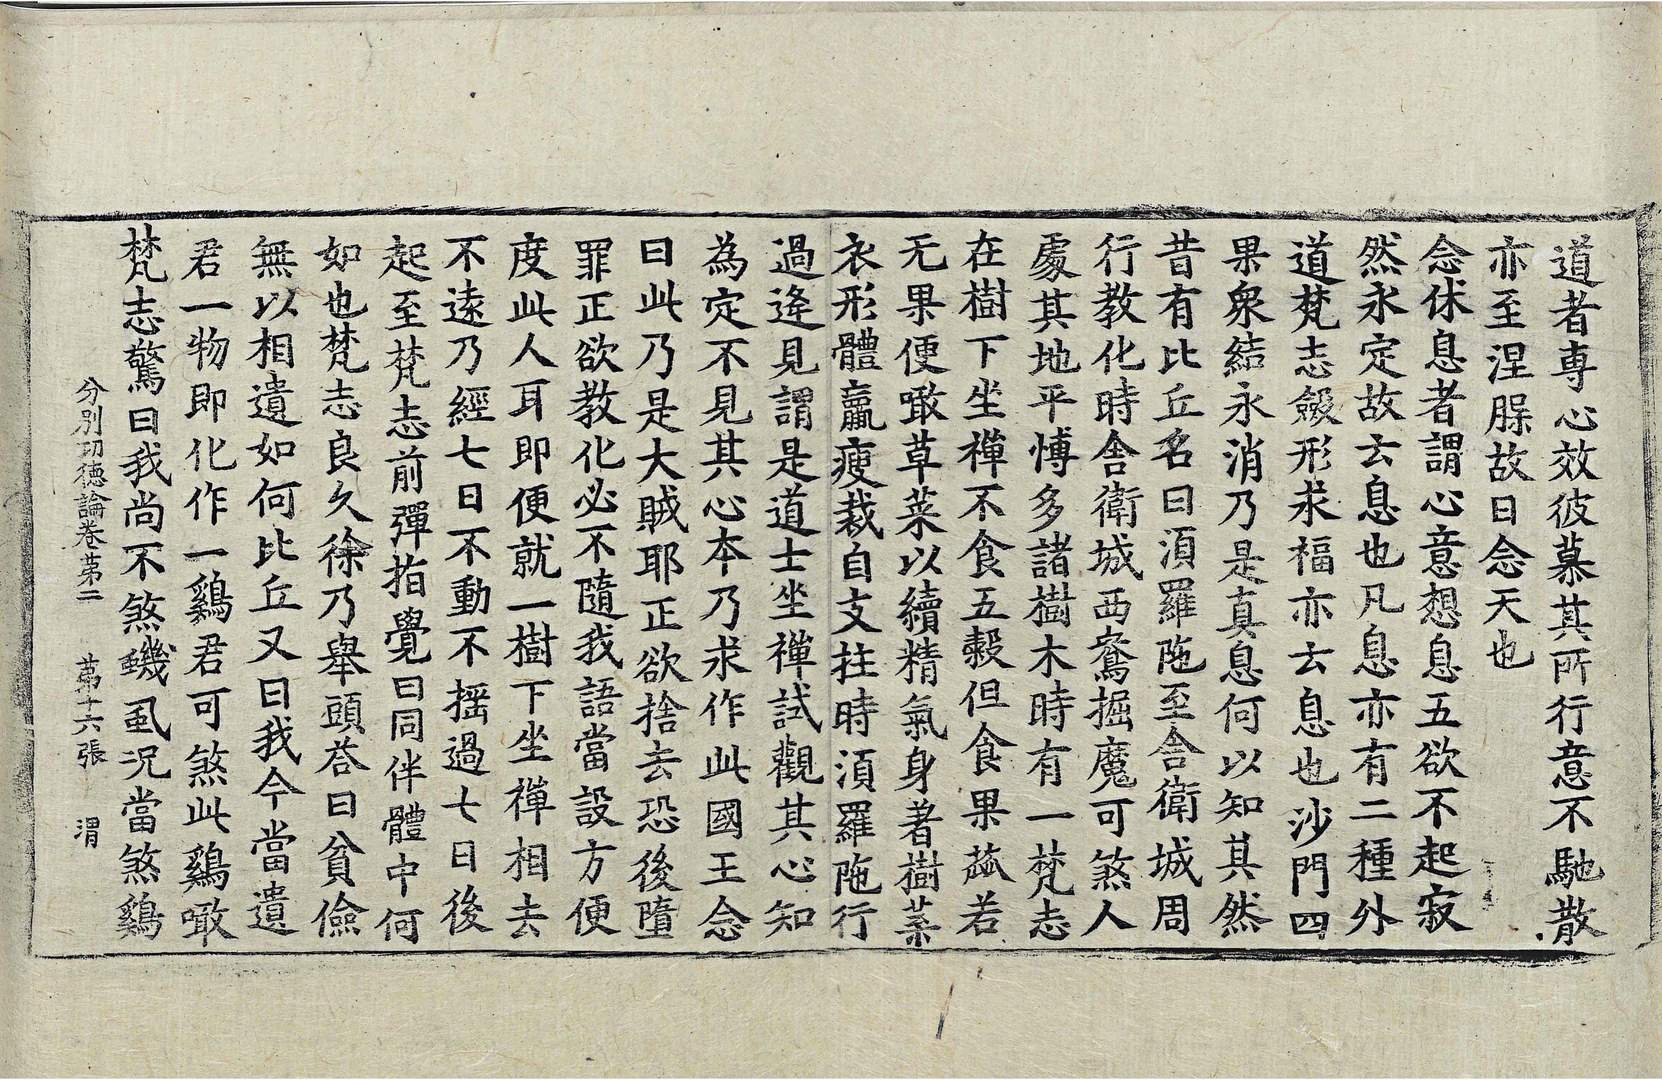 道者專心效彼慕其所行意不馳散
亦至涅脲故曰念天也
念休息者謂心意想息五欲不起寂
然永定故云息也凡息亦有二種外
道梵志餟形求福亦云息也沙門四
果衆結永消乃是真息何以知其然
昔有比丘名曰湏羅陁至舍衛城周
行教化時舍衛城西鴦掘魔可煞人
處其地平博多諸樹木時有一梵志
在樹下坐禪不食五穀但食果蓏若
无果便噉草菜以續精氣身著樹葉
衣形體羸瘦裁自支拄時湏羅陁行
過逄見謂是道士坐禪試觀其心知
為定不見其心本乃求作此國王念
曰此乃是大賊耶正欲捨去恐後墮
罪正欲教化必不隨我語當設方便
度此人耳即便就一樹下坐禪相去
不遠乃經七日不動不揺過七日後
起至梵志前彈指覺曰同伴體中何
如也梵志良久徐乃舉頭荅曰貧儉
無以相遺如何比丘又曰我今當遺
君一物即化作一鷄君可煞此鷄噉
梵志驚曰我尚不煞蟣虱况當煞鷄
分別功德論卷苐二　苐十六張　渭